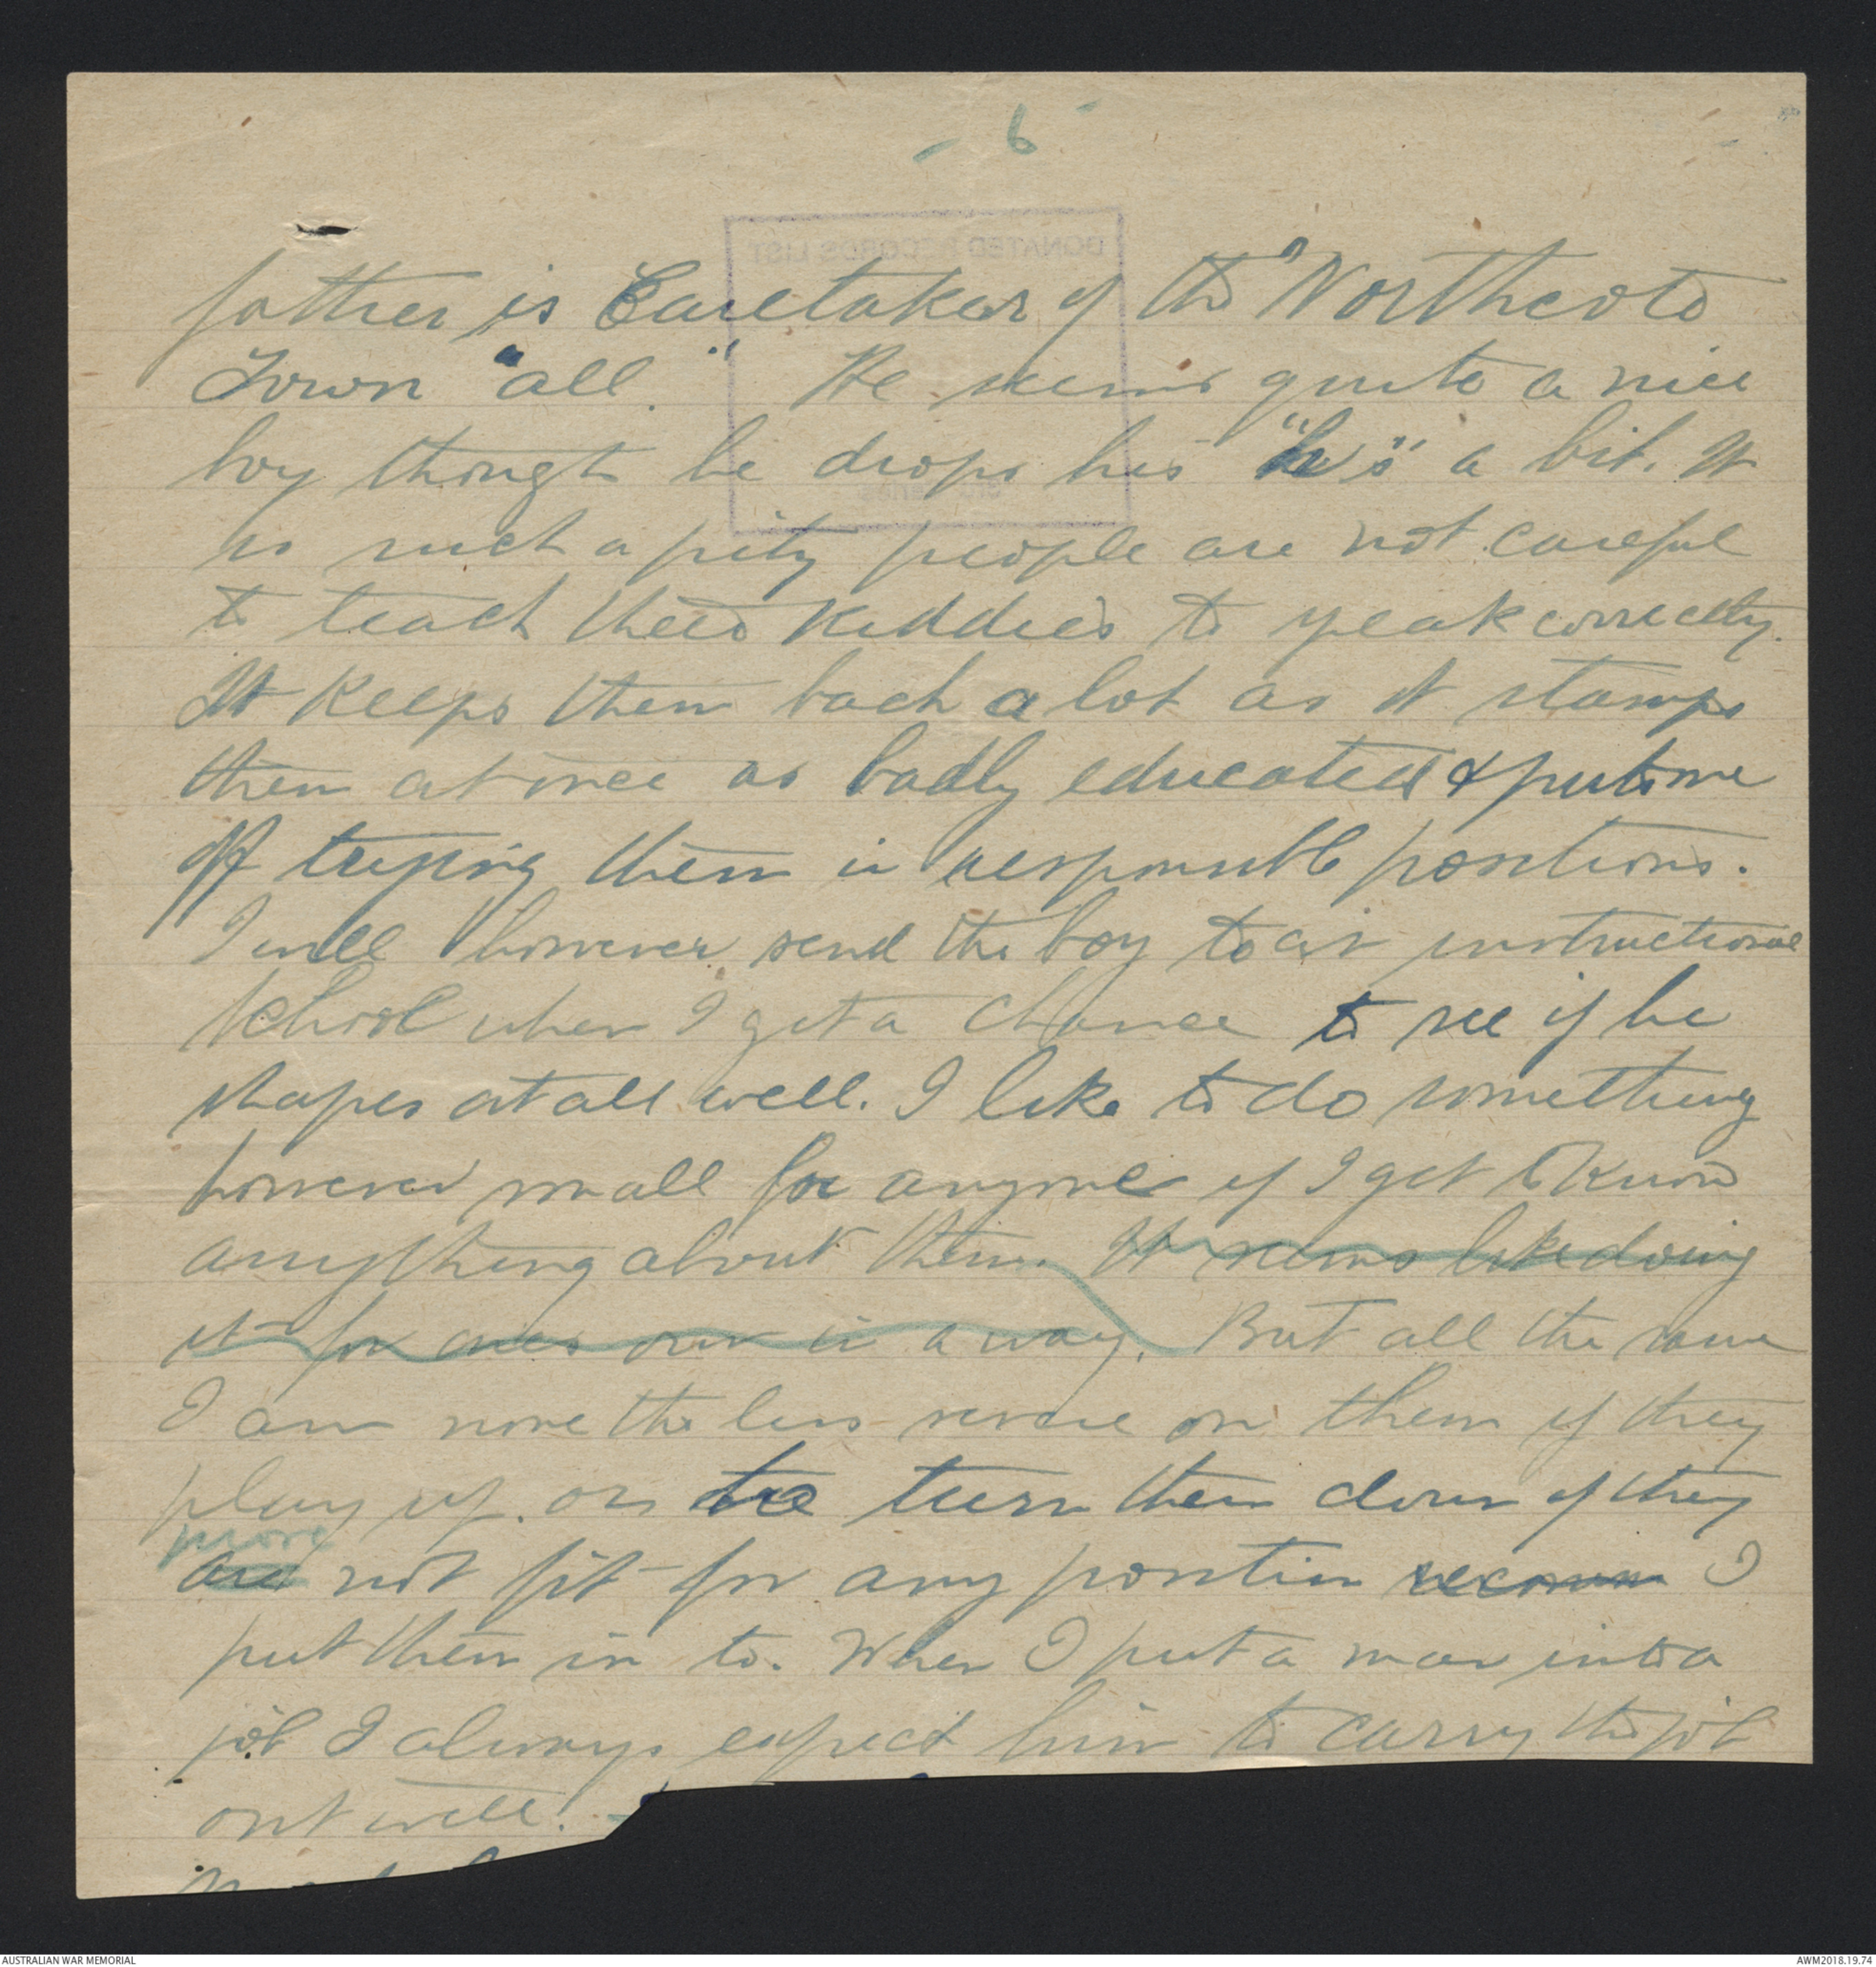 - 6 -
DONATED RECORDS LIST
father is Caretaker of the "Northcote
Town "all." He seems quite a nice
boy though he drops his "h's" a bit. It
is such a pity people are not careful
to teach their Kiddies to speak correctly.
It keeps them back a lot as it stamps
them at once as badly educated & puts one
off trying them in responsible positions.
I will however send the boy to an instructional
School when I get a chance to see if he
shapes at all well. I like to do something
however small for anyone if I get to know
anything about them. It seems like doing
it for ones own in a way. But all the same
I am none the less severe on them if they
play up. or to turn them down if they
more
are not fit for any position recomm I
put them in to. When I put a man into a
job I always expect him to carry the job
out well.
AUSTRALIAN WAR MEMORIAL
AWM2018.19.74